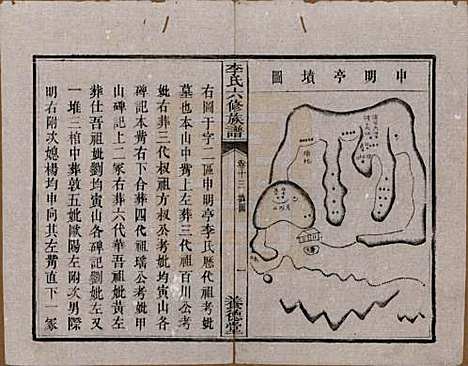 申明亭墳圖
李氏六修族譜
卷十三 墳圖
一
敦德堂
右圖于字二區申明亭李氏歷代祖考妣
墓也本山中脊上左葬三代祖百川公考
妣右葬三代叔祖方叔公考妣均寅山各
碑記本脊右下合葬四代祖璚公考妣甲
山碑記上二冢右葬六代華吾祖妣黃左
葬仕吾祖妣劉均寅山各碑記劉妣左又
一堆三棺中葬敦五妣歐陽左附次男際
明右附次媳楊均申向其左脊直下一冢